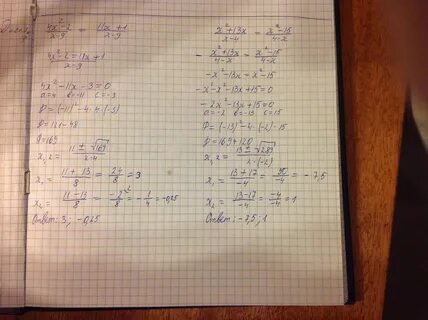 (4x²-2)/(x-9) = (11x+1)/(x-9)
(4x²-2=11x+1)/(x-9)
4x²-11x-3=0
a=4 b=-11 c=-3
D=(-11)²-4·4·(-3)
D=121-48
D=169
x₁,₂ = (11±√169)/(2·4)
x₁ = (11+13)/8 = 24/8 = 3
x₂ = (11-13)/8 = -2/8 = -1/4 = -0,25
Ответ: 3; -0,25
(x²+13x)/(x-4) = (x²-15)/(4-x)
-(x²+13x)/(4-x) = (x²-15)/(4-x)
-x²-13x=x²-15
-x²-x²-13x+15=0
-2x²-13x+15=0
a=-2 b=-13 c=15
D=(-13)²-4·(-2)·15
D=169+120
x₁,₂ = (13±√289)/(2·(-2))
x₁ = (13+17)/-4 = 30/-4 = -7,5
x₂ = (13-17)/-4 = -4/-4 = 1
Ответ: -7,5; 1